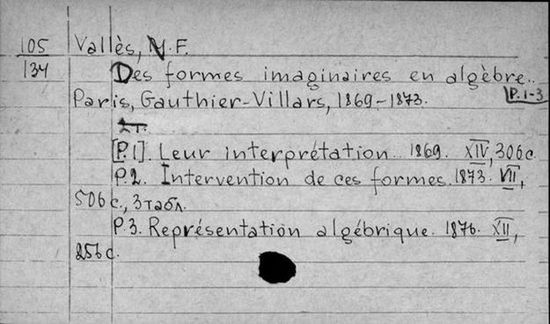 105 Vallès, N.F.
134 Des formes imaginaires en algèbre..
Paris, Gauthier-Villars, 1869-1873. P.1-3
2т.
[P.1]. Leur interprétation.. 1869. XIV, 306 с.
P.2. Intervention de ces formes. 1873. VII,
506 с., 3 табл.
P.3. Représentation algébrique. 1876. XII,
256 с.